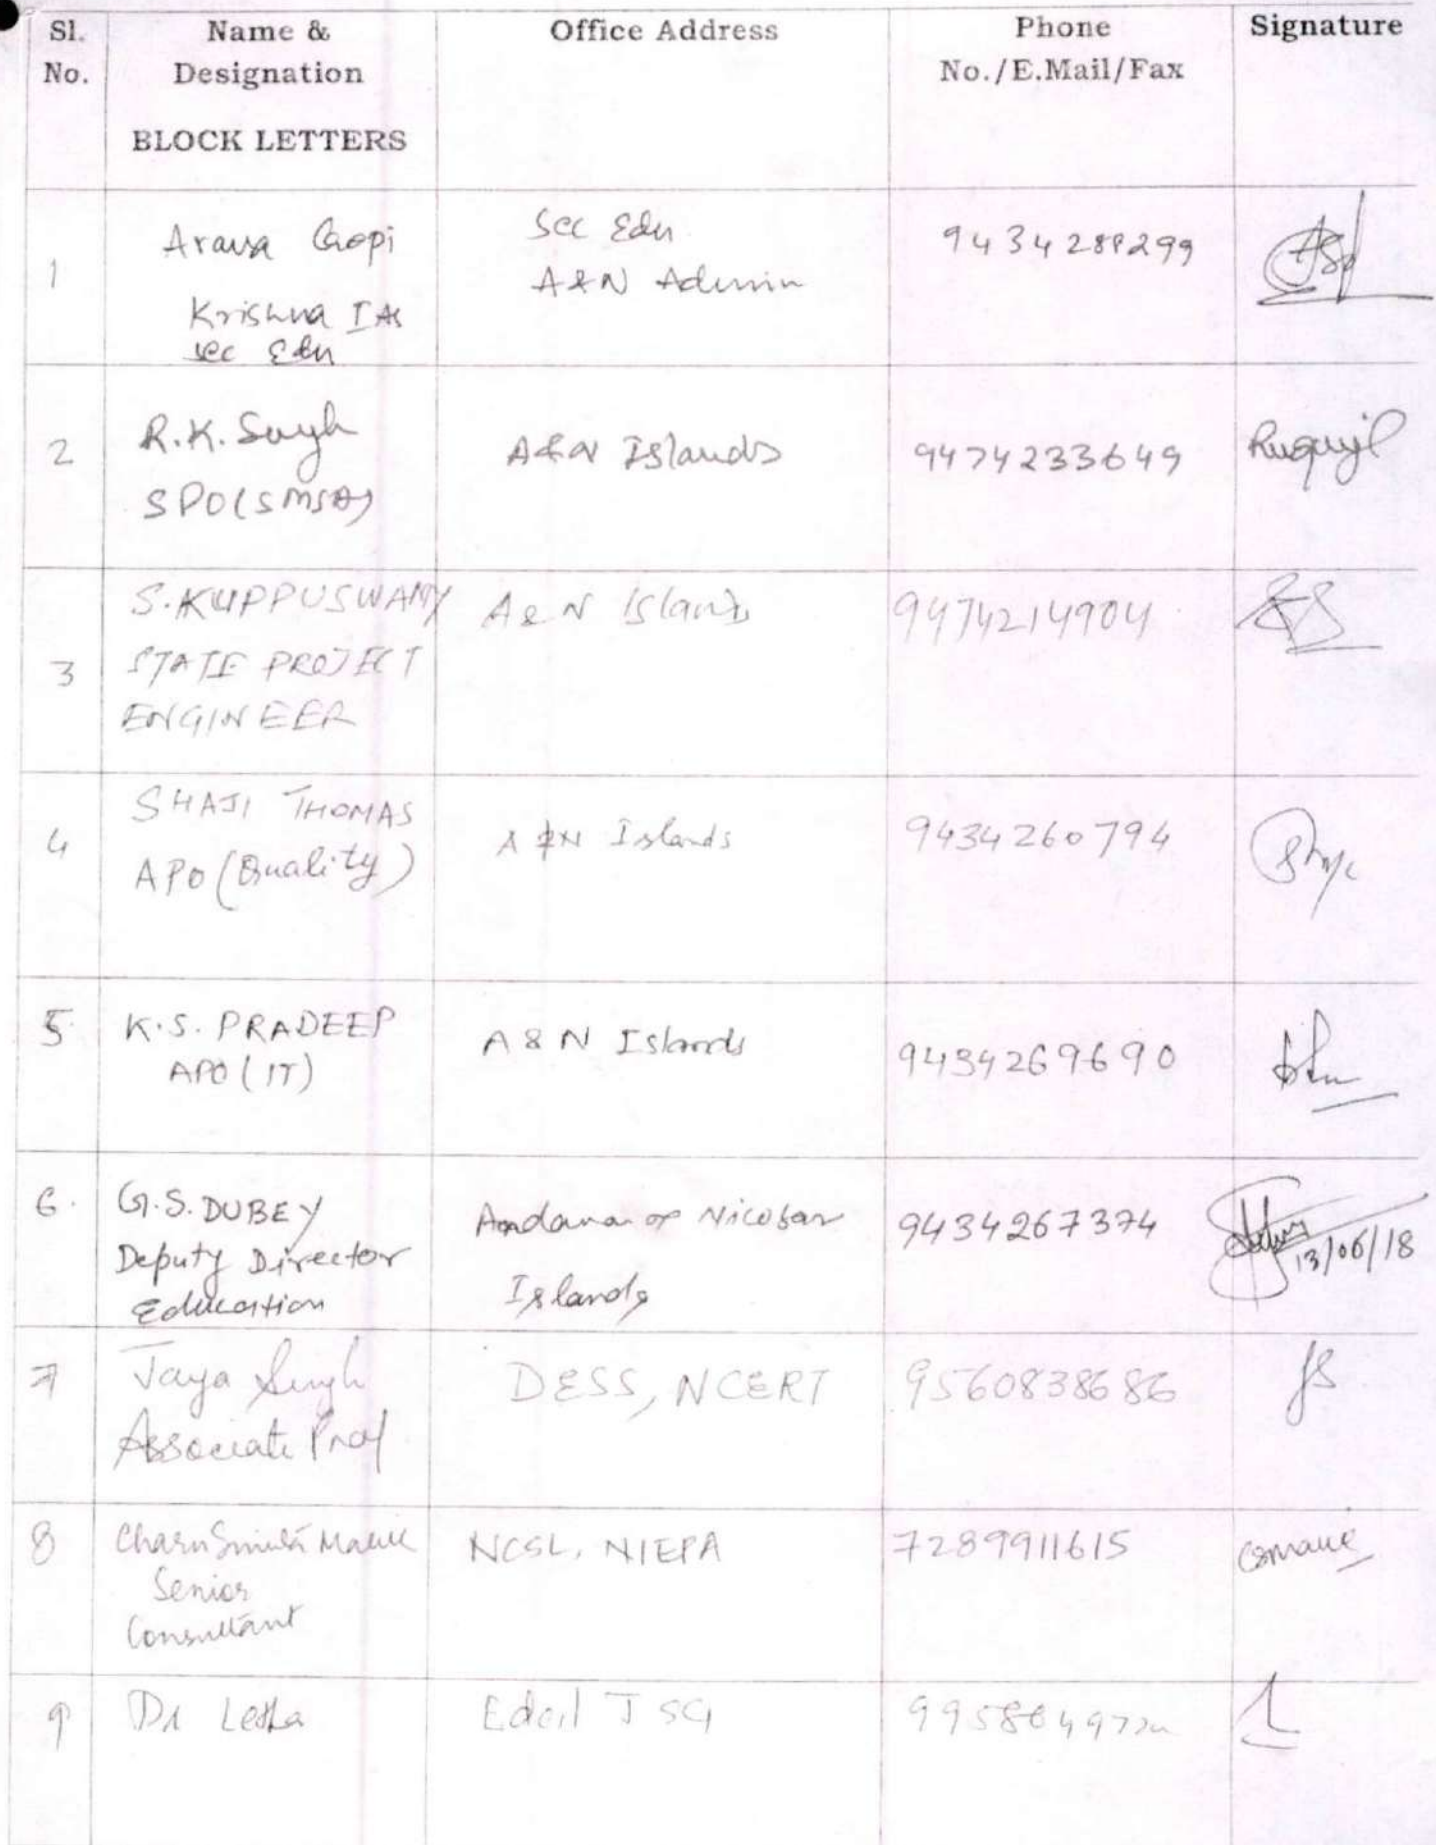 Sl. No.
Name & Designation
BLOCK LETTERS
Office Address
Phone No./E.Mail/Fax
Signature
1
Arava Gopi
Krishna IAS
Sec Edu
Sec Edu
A&N Admin
9434289299
2
R.K. Singh
SPO(SMSA)
A&N Islands
9474233649
3
S.KUPPUSWAMY
STATE PROJECT
ENGINEER
A&N Islands
9474214904
4
SHAJI THOMAS
APO (Quality)
A&N Islands
9434260794
5
K.S. PRADEEP
APO (IT)
A&N Islands
9434269690
6.
G.S. DUBEY
Deputy Director
Education
Andaman & Nicobar
Islands
9434267374
13/06/18
7
Jaya Singh
Associate Prof
DESS, NCERT
9560838686
JS
8
Senior
Consultant
NCSL, NIEPA
7289911615
9
Dr
Edcil TSG